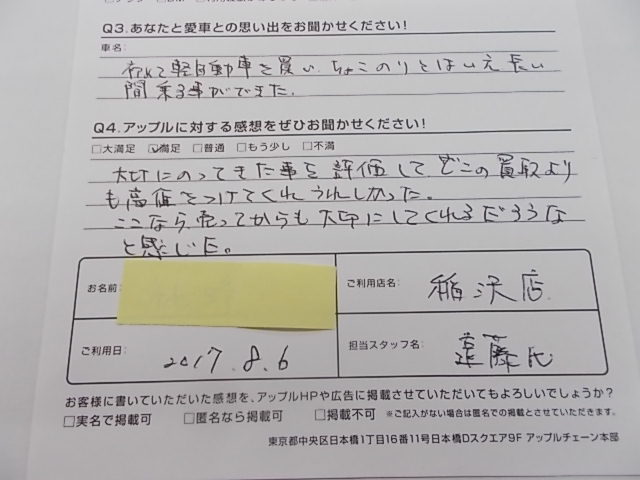 Q3.あなたと愛車との思い出をお聞かせください!
車名:
初めて軽自動車を買い、ちょこのりとはいえ長い
間乗る事ができた。
Q4.アップルに対する感想をぜひお聞かせください!
□大満足 ☑満足 □普通 □もう少し □不満
大切にのってきた事を評価して どこの買取より
も高値をつけてくれ うれしかった。
ここなら、売ってからも大切にしてくれるだろうな
と感じた。
お名前: ご利用店名: 稲沢店
ご利用日: 2017.8.6 担当スタッフ名: 遠藤氏
お客様に書いていただいた感想を、アップルHPや広告に掲載させていただいてもよろしいでしょうか?
□実名で掲載可 □匿名なら掲載可 □掲載不可 ※ご記入がない場合は匿名での掲載とさせていただきます。
東京都中央区日本橋1丁目16番11号日本橋Dスクエア9F アップルチェーン本部